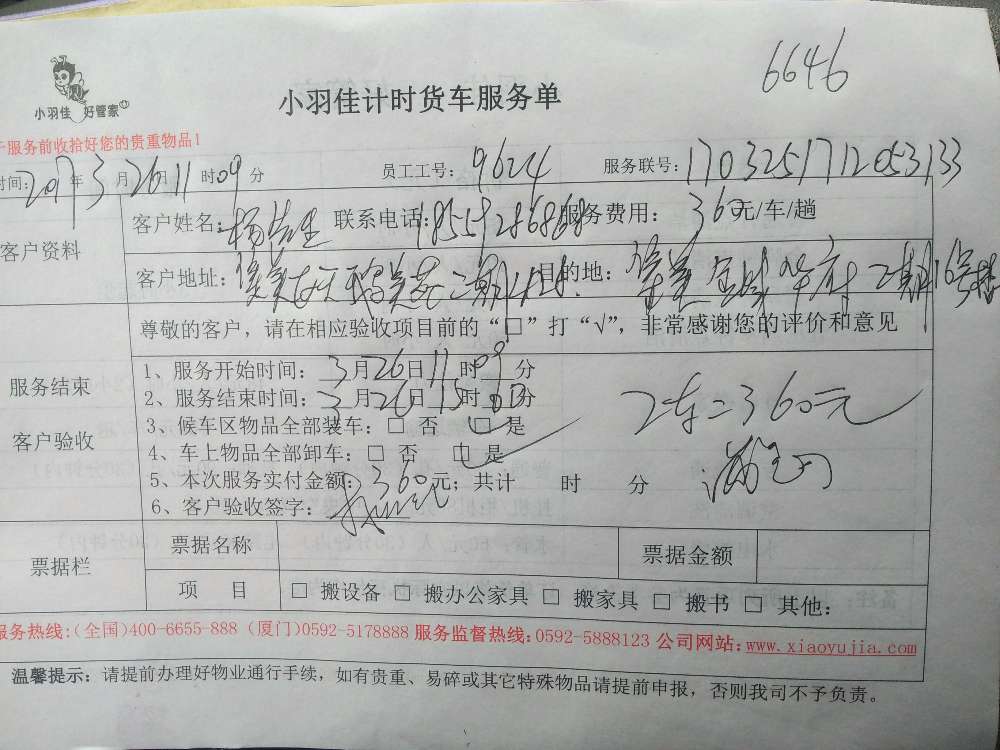 6646
小羽佳 好管家
小羽佳计时货车服务单
服务前收拾好您的贵重物品！
时间：2017年3月26日11时09分 员工工号：9624 服务联号：1703251712053133
客户资料
客户姓名：杨先生 联系电话： 服务费用：360元/车/趟
客户地址： 二期 目的地： 华府 二期16号楼
尊敬的客户，请在相应验收项目前的“口”打“√”，非常感谢您的评价和意见
服务结束
客户验收
1、服务开始时间：3月26日11时09分
2、服务结束时间：3月26日15时 分
3、候车区物品全部装车：□ 否 □ 是
4、车上物品全部卸车：□ 否 □ 是
5、本次服务实付金额：360元；共计 时 分
6、客户验收签字：
2车=360元
满意
票据栏
票据名称 票据金额
项 目 □ 搬设备 □ 搬办公家具 □ 搬家具 □ 搬书 □ 其他：
服务热线：（全国）400-6655-888（厦门）0592-5178888 服务监督热线：0592-5888123 公司网站：www.xiaoyujia.com
温馨提示：请提前办理好物业通行手续，如有贵重、易碎或其它特殊物品请提前申报，否则我司不予负责。